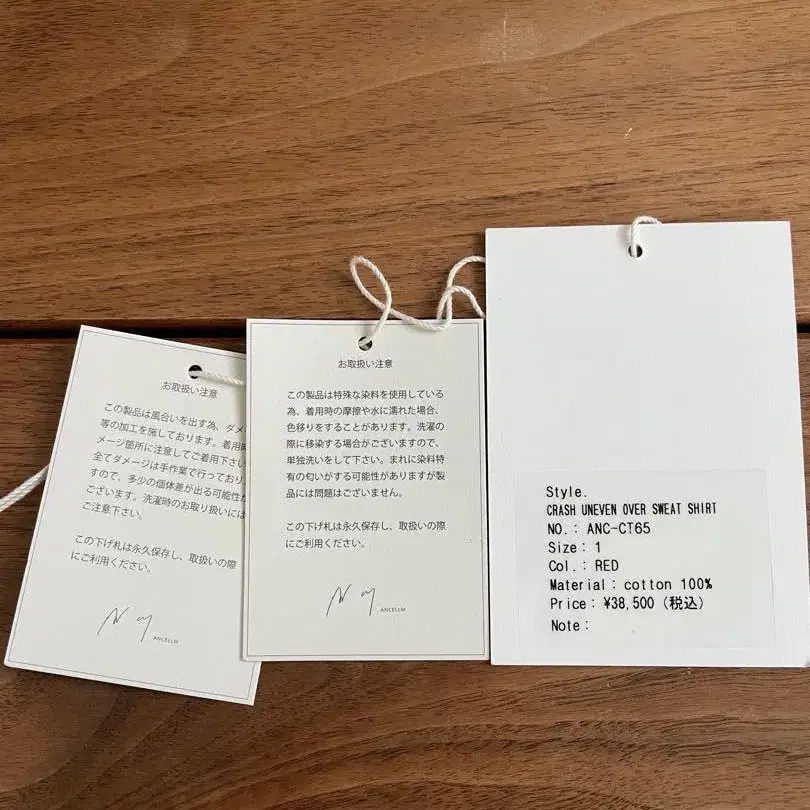 お取扱い注意
この製品は風合いを出す為、ダメ
等の加工を施しております。着用時
メージ箇所に注意してご着用下さい
全てダメージは手作業で行っており
すので、多少の個体差が出る可能性が
ございます。洗濯時のお取り扱いには
ご注意下さい。
この下げ札は永久保存し、取扱いの際
にご利用ください。
ANCELLM
お取扱い注意
この製品は特殊な染料を使用している
為、着用時の摩擦や水に濡れた場合、
色移りをすることがあります。洗濯の
際に移染する場合がございますので、
単独洗いをして下さい。まれに染料特
有の匂いがする可能性がありますが製
品には問題はございません。
この下げ札は永久保存し、取扱いの際
にご利用ください。
ANCELLM
Style.
CRASH UNEVEN OVER SWEAT SHIRT
NO.: ANC-CT65
Size: 1
Col.: RED
Material: cotton 100%
Price: ¥38,500 (税込)
Note: